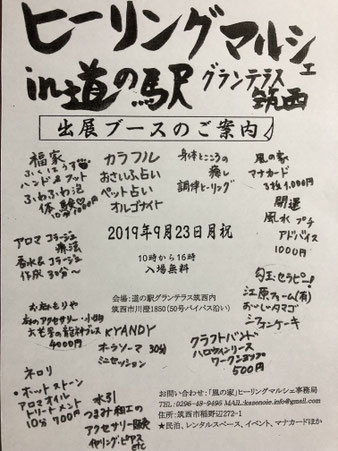 ヒーリングマルシェ
in道の駅 グランテラス
筑西
出展ブースのご案内♪
福家
ふくはうす
ハンド&フット
ふわふわ泡
体験
カラフル
おさいふ占い
ペット占い
オルゴナイト
身体とこころの
癒し
調律ヒーリング
風の家
マナカード
3枚1,000円
開運
風水プチ
アドバイス
1000円
アロマコラージュ
療法
香水&コラージュ
作成 30分〜
2019年9月23日月祝
10時から16時
入場無料
会場:道の駅グランテラス筑西内
筑西市川澄1850(50号バイパス沿い)
勾玉セラピー
江原ファーム(有)
おいしいタマゴ
シフォンケーキ
おねもりや
麻のアクセサリー・小物
六芒星の龍神ブレス
4000円
KYANDY
オーラソーマ 30分
ミニセッション
クラフトバンド
ハロウィンリース
ワークショップ
500円
ネロリ
・ホットストーン
アロマオイル
トリートメント
10分700円
水引
つまみ細工の
アクセサリー販売
イヤリング・ピアス
etc
お問い合わせ:「風の家」ヒーリングマルシェ事務局
TEL:0296-48-9496 MAIL:kazenoie.info@gmail.com
住所:筑西市稲野辺272-1
★民泊、レンタルスペース、イベント、マナカードほか